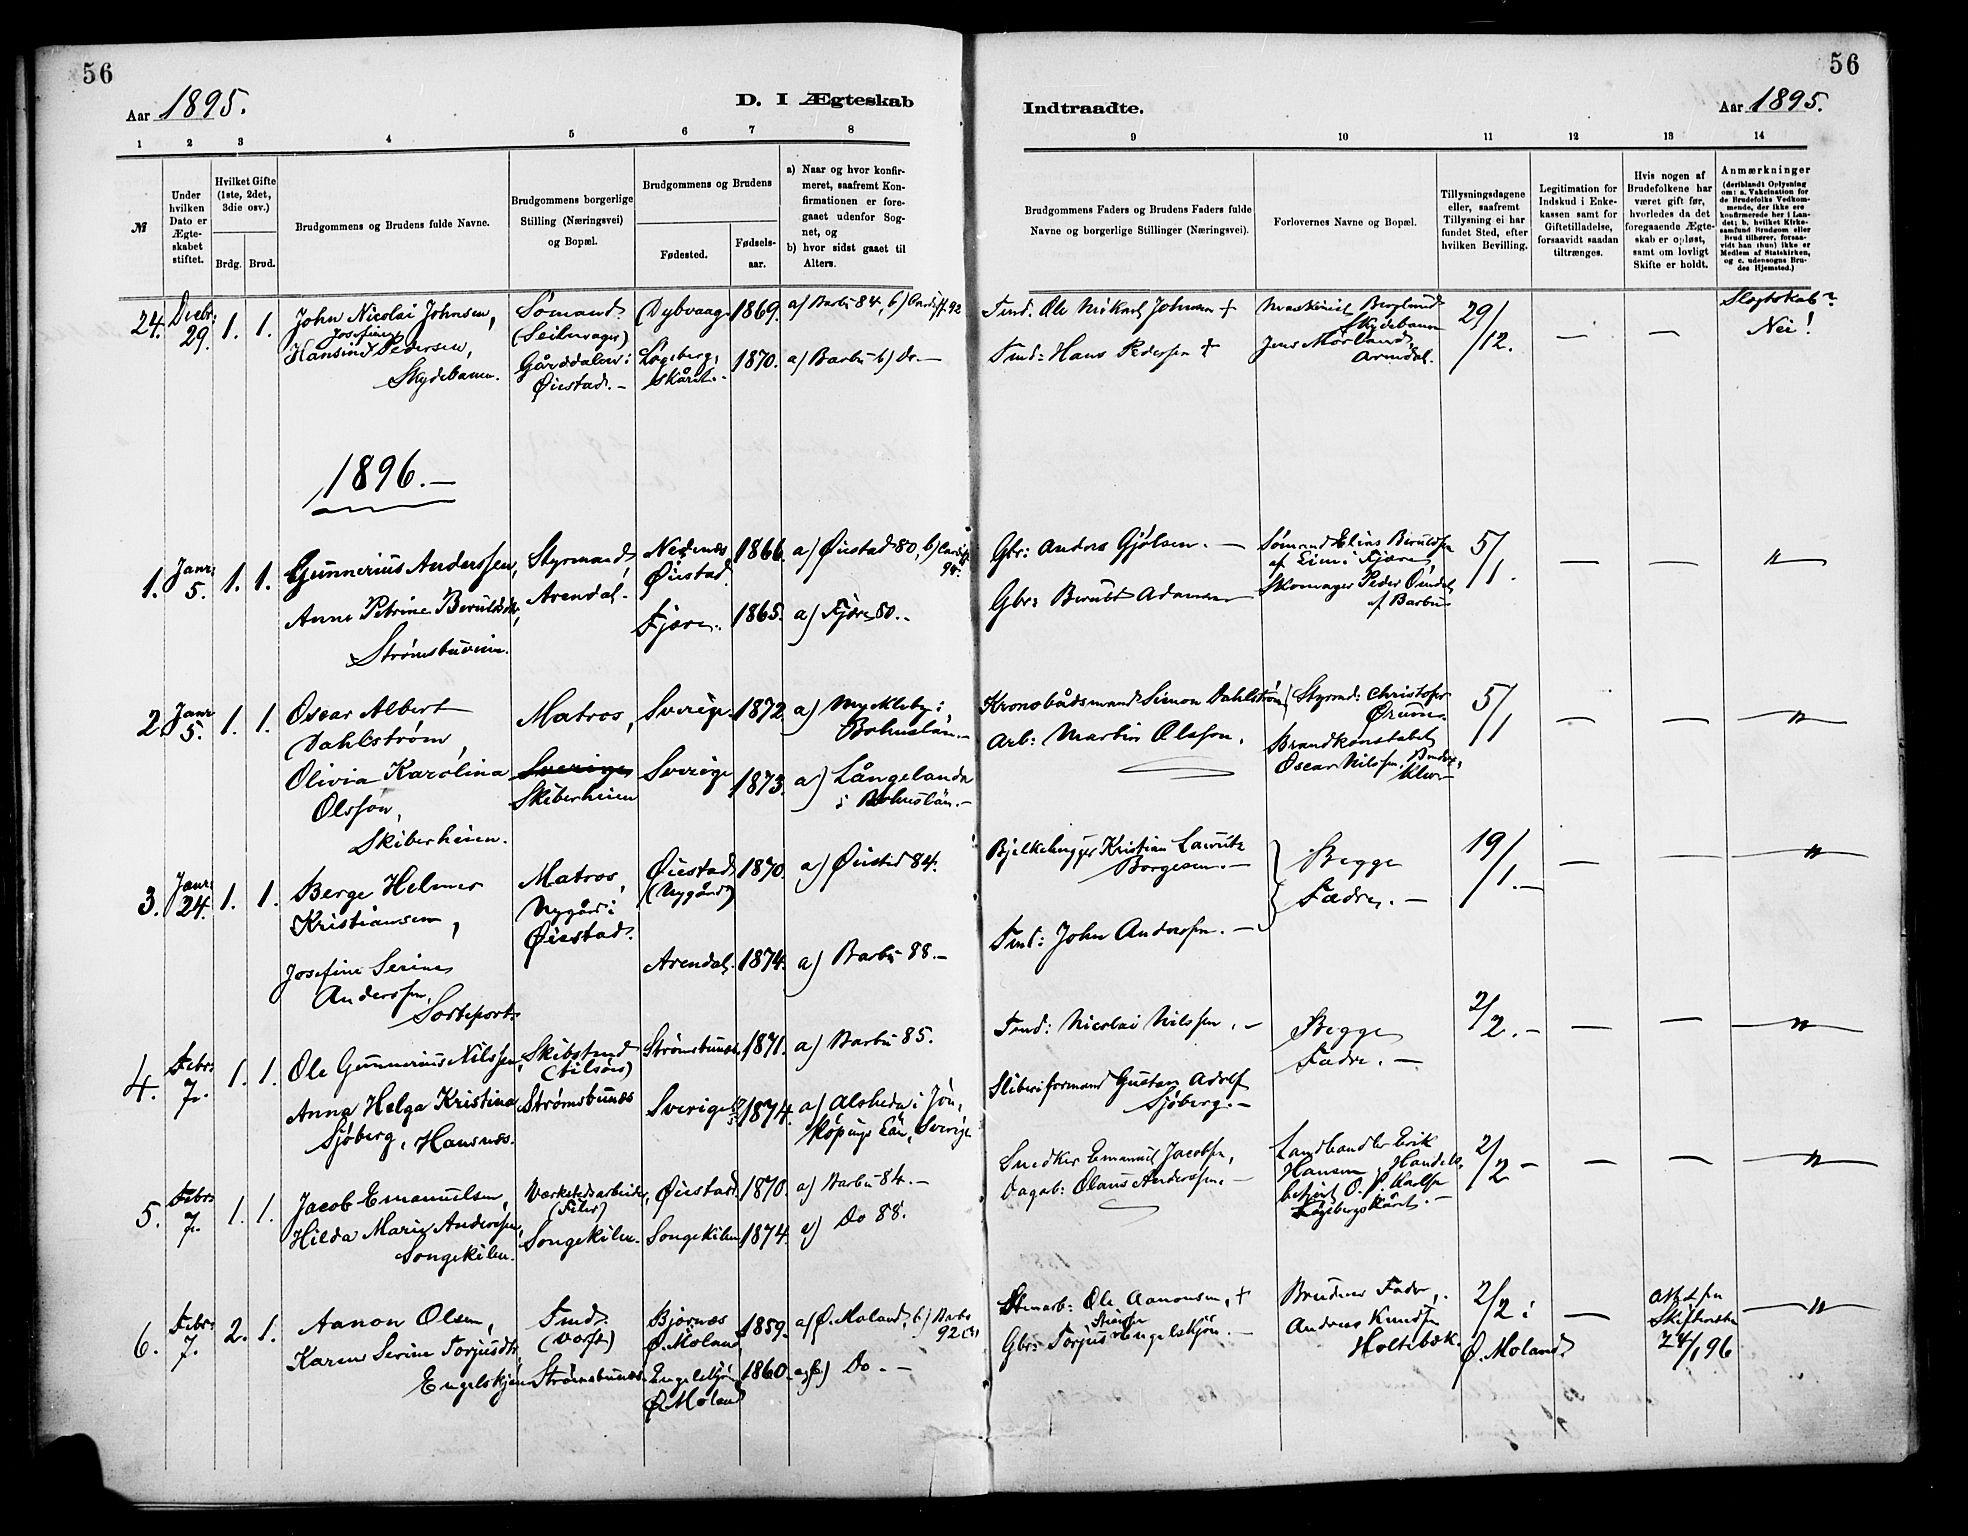 56
56
Aar 1895.
D. I Ægteskab
Indtraadte.
Aar 1895.
1 2 3 4 5 6 7 8
9 10 11 12 13 14
№
Under hvilken Dato er Ægteskabet stiftet.
Hvilket Gifte (1ste, 2det, 3die osv.)
Brdg. Brud.
Brudgommens og Brudens fulde Navne.
Brudgommens borgerlige Stilling (Næringsvei) og Bopæl.
Brudgommens og Brudens
Fødested.
Fødselsaar.
a) Naar og hvor konfirmeret, saafremt Konfirmationen er foregaaet udenfor Sognet, og
b) hvor sidst gaaet til Alters.
Brudgommens Faders og Brudens Faders fulde Navne og borgerlige Stillinger (Næringsvei).
Forlovernes Navne og Bopæl.
Tillysningsdagene eller, saafremt Tillysning ei har fundet Sted, efter hvilken Bevilling.
Legitimation for Indskud i Enkekassen samt for Giftetilladelse, forsaavidt saadan tiltrænges.
Hvis nogen af Brudefolkene har været gift før, hvorledes da det foregaaende Ægteskab er opløst, samt om lovligt Skifte er holdt.
Anmærkninger
(deriblandt Oplysning om: a. Vakcination for de Brudefolks Vedkommende, der ikke ere konfirmerede her i Landet; b. hvilket Kirkesamfund Brudgom eller Brud tilhører, forsaavidt han (hun) ikke er Medlem af Statskirken, og c. udensogns Brudes Hjemsted.)
24. Decbr: 29. 1. 1.
John Nicolai Johnsen,
Josefine
Hansine Pedersen,
Skydebanen.
Sømand
(Seilmager)
Gårddalen i
Øiestad.-
Dybvaag 1869. a) Barbu 84, b) Cardiff 92
Løgeberg-
skåret.- 1870. a) Barbu b) Do.-
Tmd. Ole Mikael Johnsen +
Tmd: Hans Pedersen +
Maskinist Berglund
Skydebanen
Jens Mørland
Arendal.
29/12. — —
Slegtskab?
Nei!
1896.-
1. Janr: 5. 1. 1.
Gunnerius Anderssen,
Anne Petrine Berulsdtr,
Strømsbuveien.
Styrmand,
Arendal.
Nedenæs
Øiestad. 1866. a) Øiestad 80, b) Cardiff
Fjære. 1865. a) Fjære 80.-
Gbr: Anders Gjølsen.-
Gbr: Berulv Adamsen
Sømand Elias Berulsen
af Lien i Fjære,
Skomager Peder Omdal
af Barbu
5/1. — — "
2. Janr 5. 1. 1.
Oscar Albert
Dahlstrøm,
Olivia Karolina
Olsson,
Skiberheien.
Matros,
Sverige
Skiberheien
Sverige. 1872. a) Myckleby i
Bohuslän.-
Sverige 1873. a) Långelanda
i Bohuslän.-
Kronobådsmand Simon Dahlstrøm
Arb: Martin Olsson.
Styrmd: Christofer
Ørum.
Brandkonstabel
Oscar Nilssen,
5/1 — — "
3. Janr: 24. 1. 1.
Berge Helmer
Kristiansen,
Josefine Serine
Anderssen,
Sorteport.
Matros,
Nygård i
Øiestad.
Øiestad
(Nygård) 1870. a) Øiestad 84.
Arendal. 1874. a) Barbu 88.-
Bjelkehugger Kristian Lauritz
Borgesen.-
Tmd: John Anderssen.-
Begge
Fædre.-
19/1.- — — "
4. Febr: 7. 1. 1.
Ole Gunnerius Nilssen,
Anna Helga Kristina
Sjöberg, Hansnæs.
Skibstmd
(tilsøs)
Strømsbunæs
Strømsbunæs 1871. a) Barbu 85.
Sverige 1874. a) Alsheda i Jön-
köpings Län, Sverige
Tmd: Nicolai Nilssen.-
Sliberiformand Gustav Adolf
Sjöberg.-
Begge
Fædre.-
2/2.- — — "
5. Febr: 7. 1. 1.
Jacob Emanuelsen,
Hilda Marie Anderssen,
Songekilen.
Værkstedsarbeider,
(Filer)
Songekilen.
Øiestad. 1870. a) Barbu 84.-
Songekilen 1874. a) Do 88.
Snedker Emanuel Jacobsen,
Dagab: Olaus Anderssen.-
Landhandler Erik
Hansen, Handels-
betjent O. P. Karlsen
Løgebergskåret.-
2/2- — — "
6. Febr: 7. 2. 1.
Aanon Olsen,
Karen Serine Torjusdtr,
Engelskjøn
Tmd.
(Værft)
Strømsbunæs
Bjornæs
Ø. Moland, 1859. a) Ø. Moland, b) Barbu
92
Engelskjøn
Ø. Moland 1860. a & b) Do.-
Stenarb: Ole Aanonsen, +
Gbr: Torjus Engelskjøn.-
Brudens Fader,
Andreas Knudsen
Holtebæk.
Ø. Moland.
2/2 —
Att. fra
Skifteretten
24/1 96
"